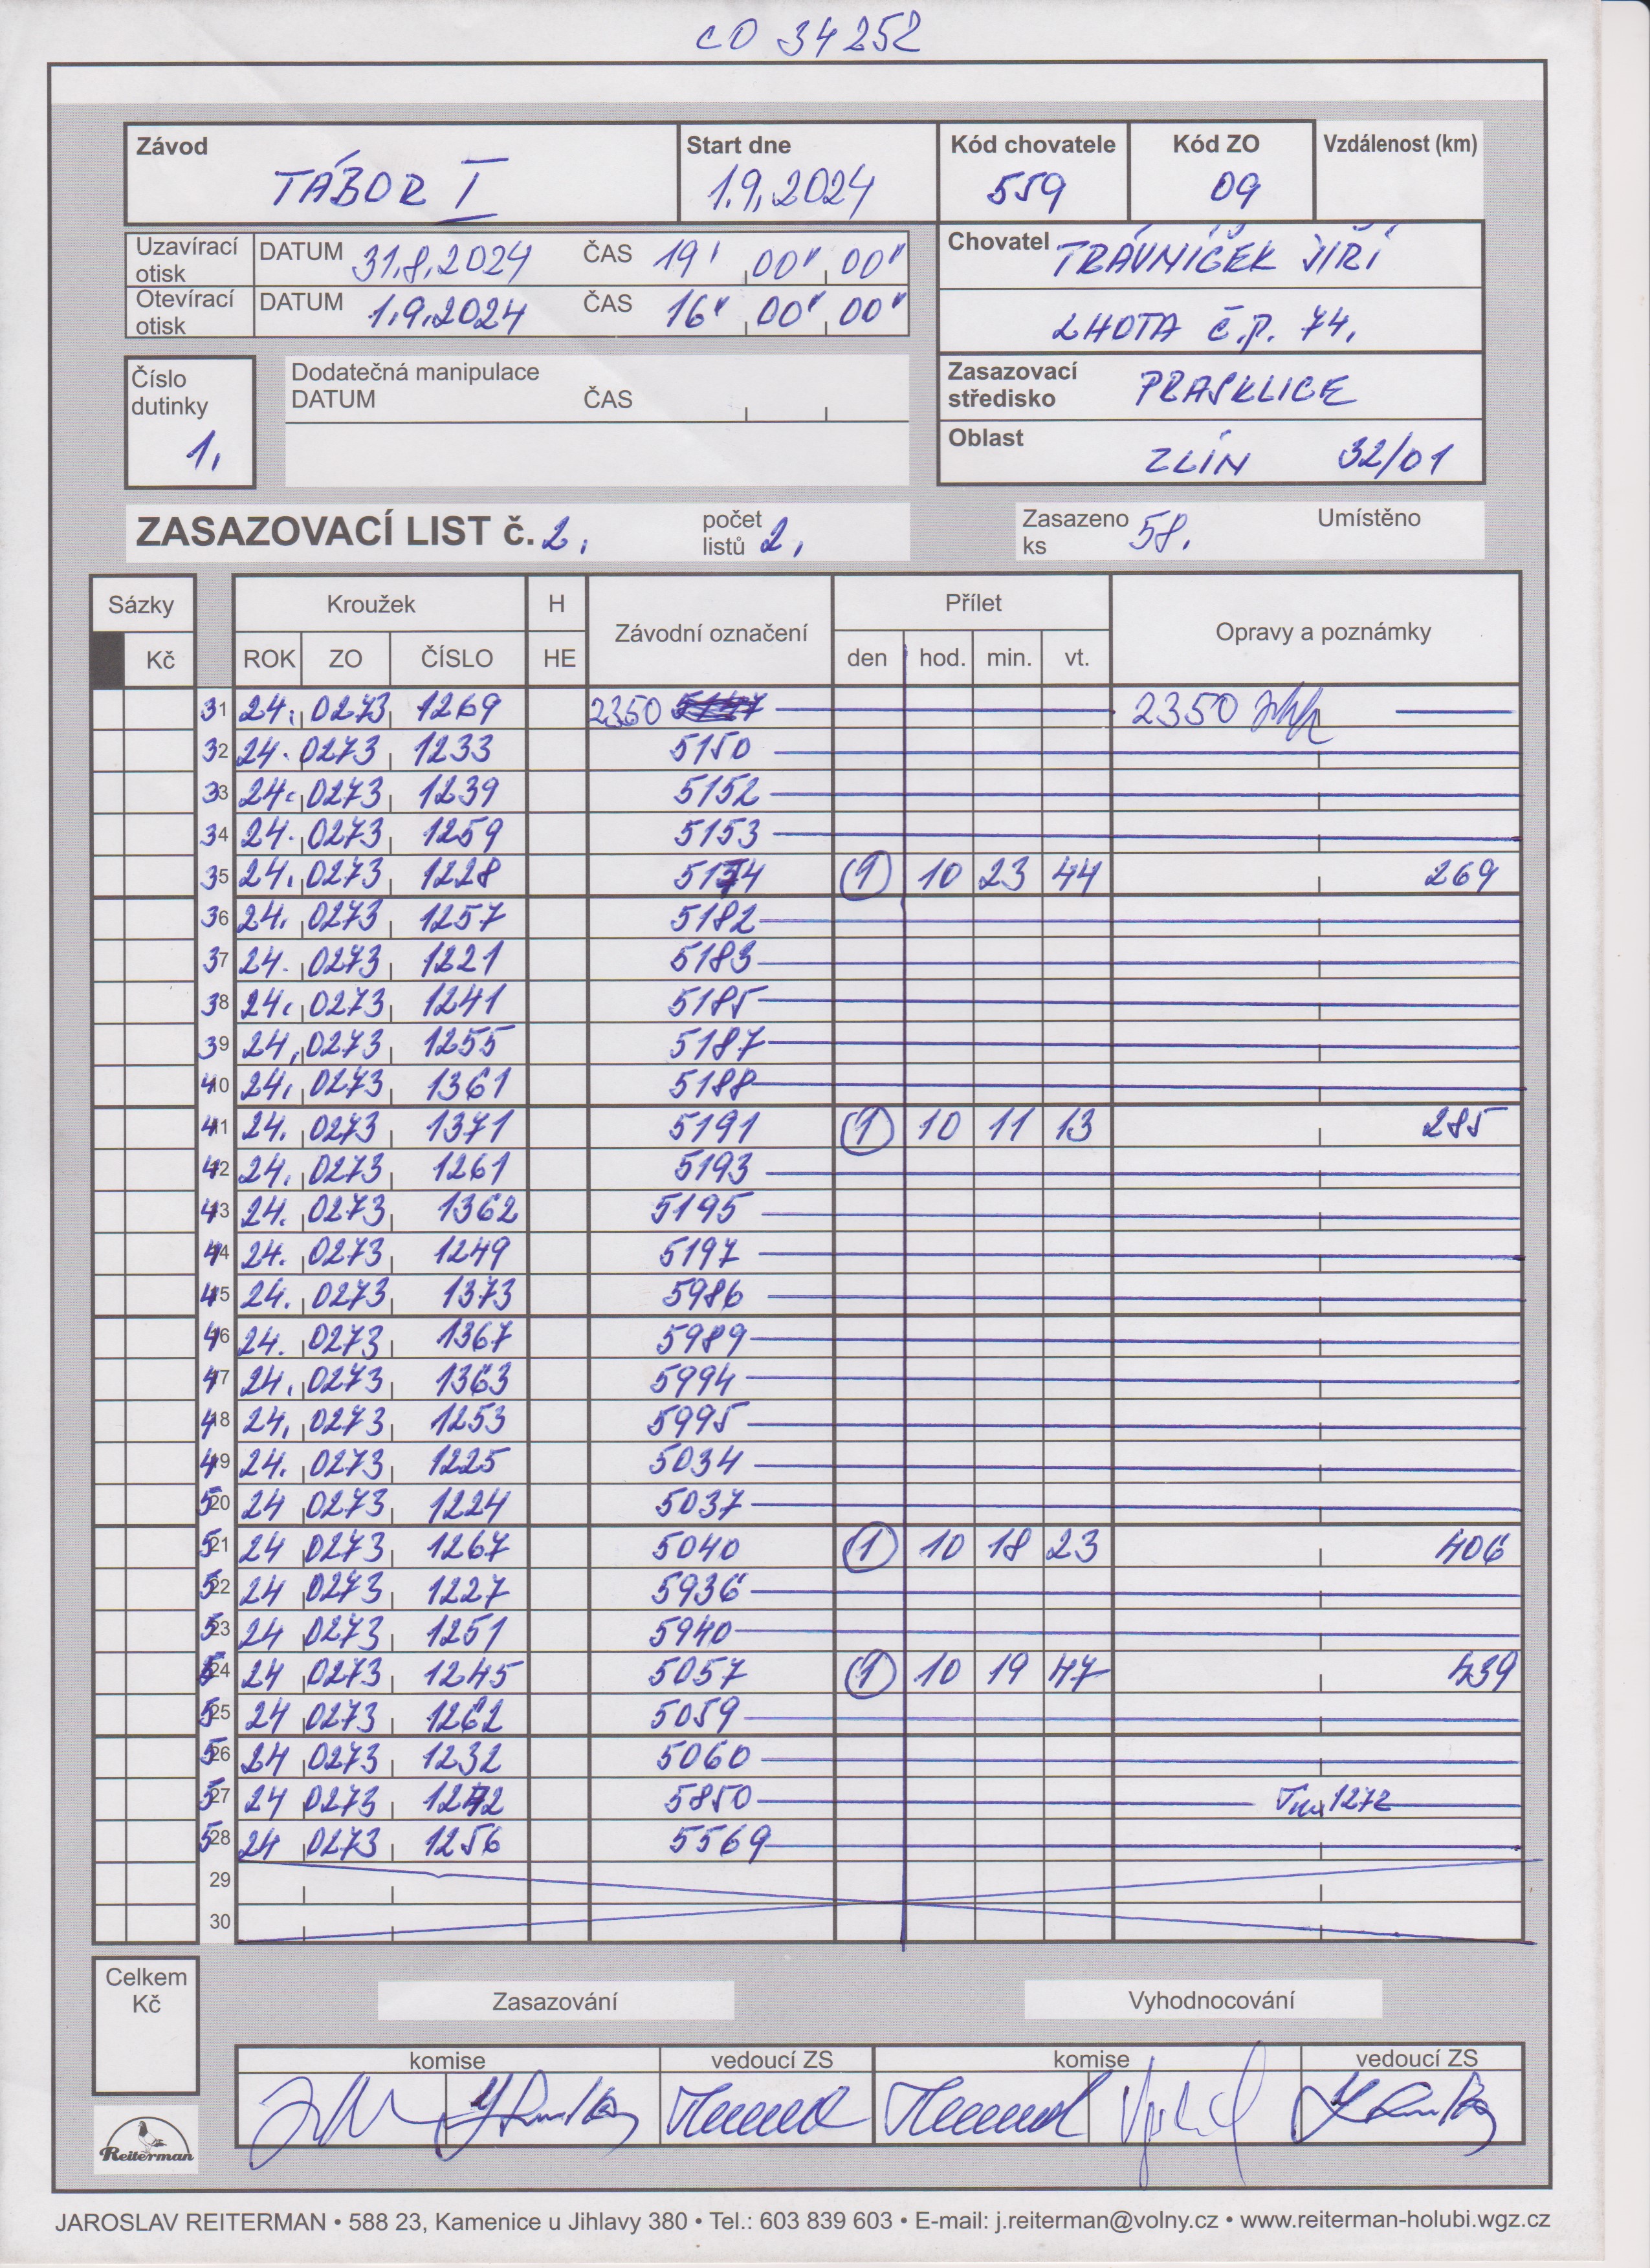 CO 34252
Závod Start dne Kód chovatele Kód ZO Vzdálenost (km)
TÁBOR I 1.9.2024 559 09
Uzavírací otisk DATUM 31.8.2024 ČAS 19' 00" 00"
Otevírací otisk DATUM 1.9.2024 ČAS 16" 00" 00"
Chovatel TRÁVNÍČEK JIŘÍ
LHOTA č.p. 74.
Zasazovací středisko PRASKLICE
Oblast ZLÍN 32/01
Číslo dutinky
1.
Dodatečná manipulace
DATUM ČAS
ZASAZOVACÍ LIST č. 2. počet listů 2. Zasazeno ks 58. Umístěno
Sázky Kroužek H Závodní označení Přílet Opravy a poznámky
Kč ROK ZO ČÍSLO HE den hod. min. vt.
31 24. 0273 1269 2350 2350
32 24. 0273 1233 5150
33 24. 0273 1239 5152
34 24. 0273 1259 5153
35 24. 0273 1228 5174 1 10 23 44 269
36 24. 0273 1257 5182
37 24. 0273 1221 5183
38 24. 0273 1241 5185
39 24. 0273 1255 5187
40 24. 0273 1361 5188
41 24. 0273 1371 5191 1 10 11 13 285
42 24. 0273 1261 5193
43 24. 0273 1362 5195
44 24. 0273 1249 5197
45 24. 0273 1373 5986
46 24. 0273 1367 5989
47 24. 0273 1363 5994
48 24. 0273 1253 5995
49 24. 0273 1225 5034
520 24 0273 1224 5037
521 24 0273 1267 5040 1 10 18 23 406
522 24 0273 1227 5936
523 24 0273 1251 5940
524 24 0273 1245 5057 1 10 19 47 439
525 24 0273 1262 5059
526 24 0273 1232 5060
527 24 0273 1272 5850 1272
528 24 0273 1256 5569
29
30
Celkem Kč
Zasazování Vyhodnocování
komise vedoucí ZS komise vedoucí ZS
Reiterman
JAROSLAV REITERMAN • 588 23, Kamenice u Jihlavy 380 • Tel.: 603 839 603 • E-mail: j.reiterman@volny.cz • www.reiterman-holubi.wgz.cz